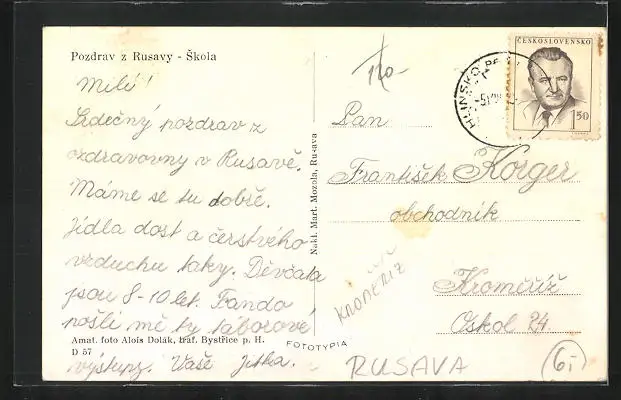 Pozdrav z Rusavy - Škola
Milí!
Srdečný pozdrav z
ozdravovny v Rusavě.
Máme se tu dobře.
Jídla dost a čerstvého
vzduchu taky. Děvčata
jsou 8-10 let. Fando
pošli mě ty táborové
výstupz. Vaše Jitka.
Amat. foto Alois Dolák, traf. Bystřice p. H.
D 57
Nakl. Mart. Mozola, Rusava
FOTOTYPIA
ČESKOSLOVENSKO
1 50
HLINSKO
Pan
František Korger
obchodník
Kroměříž
Oskol 24.
KROMĚŘIZ
RUSAVA
6,-